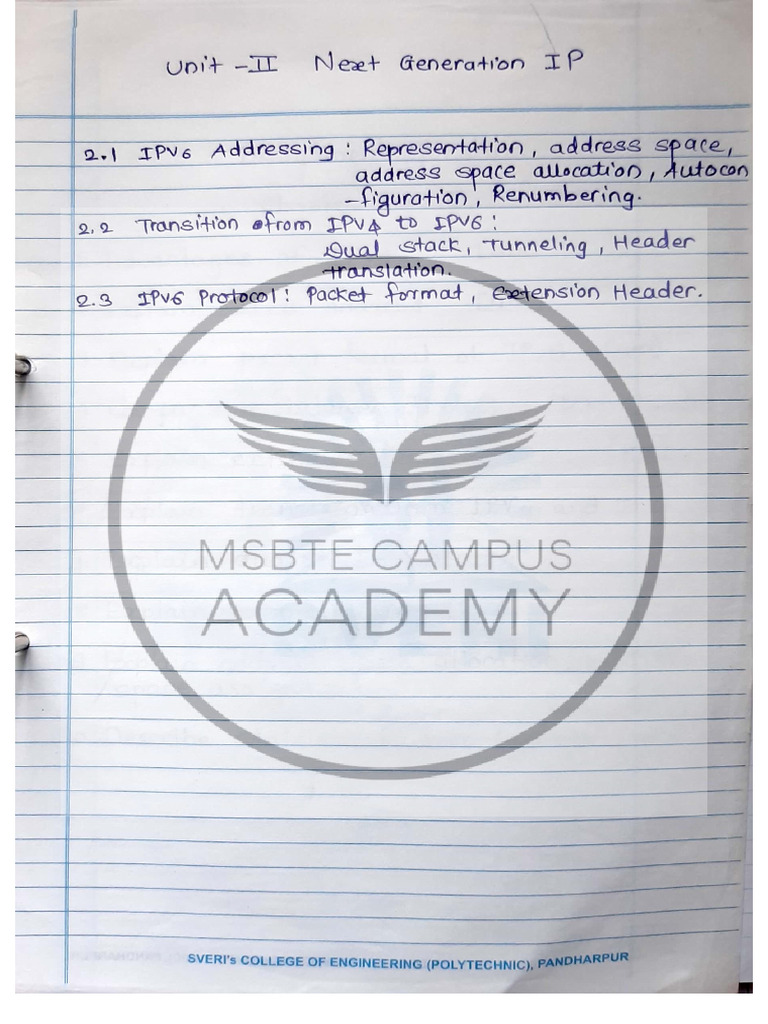 Unit - II Next Generation IP
2.1 IPV6 Addressing : Representation, address space,
address space allocation, Autocon
-figuration, Renumbering.
2.2 Transition from IPV4 to IPV6 :
Dual stack, Tunneling, Header
translation.
2.3 IPV6 Protocol : Packet format, extension Header.
MSBTE CAMPUS
ACADEMY
SVERI's COLLEGE OF ENGINEERING (POLYTECHNIC), PANDHARPUR